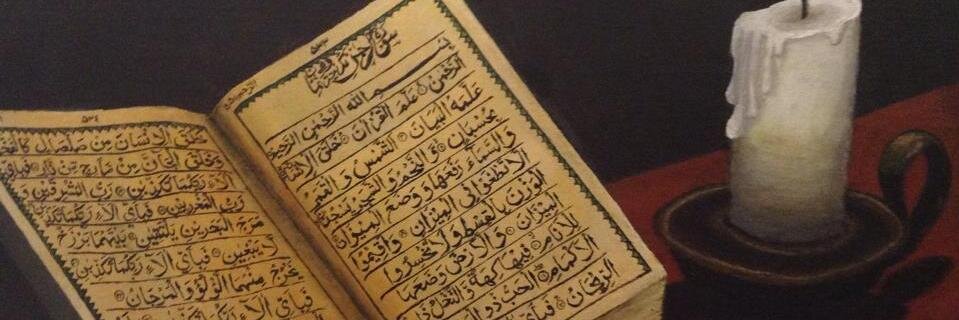 بسم الله الرحمن الرحيم
الرحمن علم القران خلق الانسا
علمه البيان الشمس والقمر
بحسبان والنجم والشجر يسجدن
والسماء رفعها ووضع الميزان
الا تطغوا فى الميزان واقيموا
الوزن بالقسط ولا تخسروا
الميزان والارض وضعها
للانام فيها فكهة والنخل ذات
الاكمام والحب ذو
الريحان فباى
٥٣٤
خلق الانسان من صلصال كالفخار
وخلق الجان من مارج من نار فباى
الاء ربكما تكذبن رب المشرقين و
رب المغربين فباى الاء ربكما تكذبن
مرج البحرين يلتقين بينهما برزخ
لا يبغين فباى الاء ربكما تكذبن
يخرج منهما اللؤلؤ والمرجان
فباى الاء ربكما تكذبن